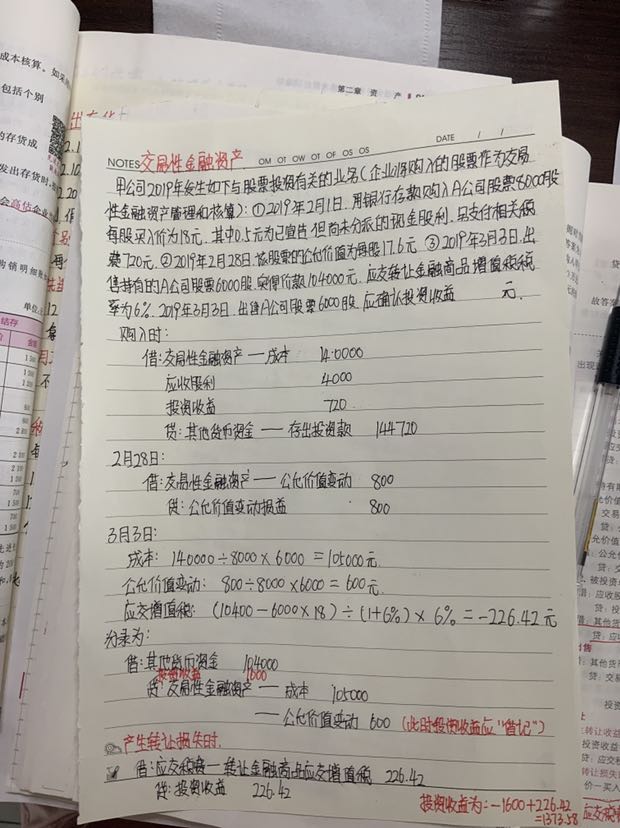 成本核算。如采
包括个别
的存货成
发出存货时
会高估企
第二章 资 产
NOTES 交易性金融资产
OM OT OW OT OF OS OS
DATE / /
甲公司2019年发生如下与股票投资有关的业务(企业将购入的股票作为交易
性金融资产管理和核算):①2019年2月1日,用银行存款购入A公司股票8000股
每股买入价为18元,其中0.5元为已宣告但尚未分派的现金股利,另支付相关税
费720元。②2019年2月28日,该股票的公允价值为每股17.6元 ③2019年3月3日,出
售持有的A公司股票6000股,实得价款104000元,应交转让金融商品增值税税
率为6%。2019年3月3日,出售A公司股票6000股,应确认投资收益 元。
购入时:
借:交易性金融资产—成本 140000
应收股利 4000
投资收益 720
贷:其他货币资金——存出投资款 144720
2月28日:
借:交易性金融资产—公允价值变动 800
贷:公允价值变动损益 800
3月3日:
成本: 140000÷8000×6000=105000元
公允价值变动: 800÷8000×6000=600元
应交增值税: (10400-6000×18)÷(1+6%)×6%=-226.42元
分录为:
借:其他货币资金 104000
投资收益 1600
贷:交易性金融资产——成本 105000
——公允价值变动 600 (此时投资收益应"借记")
产生转让损失时.
借:应交税费—转让金融商品应交增值税 226.42
贷:投资收益 226.42
投资收益为:-1600+226.42
=1373.58